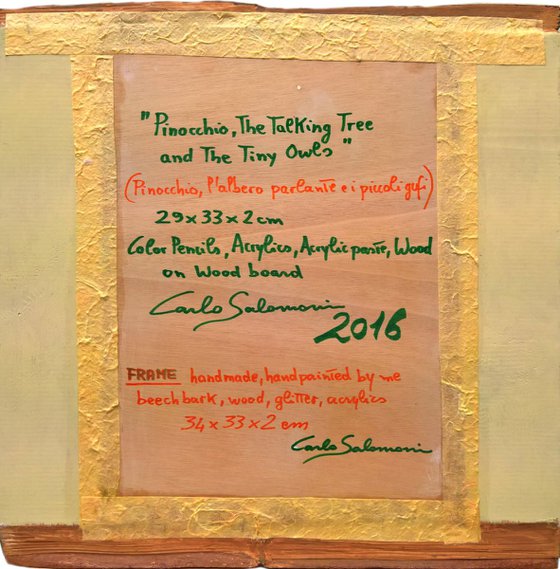 "Pinocchio, The Talking Tree
and The Tiny Owls"
(Pinocchio, l'albero parlante e i piccoli gufi)
29x33x2cm
Color Pencils, Acrylics, Acrylic paste, Wood
on Wood board
Carlo Salomoni
2016
FRAME handmade, handpainted by me
beech bark, wood, glitter, acrylics
34x33x2 cm
Carlo Salomoni